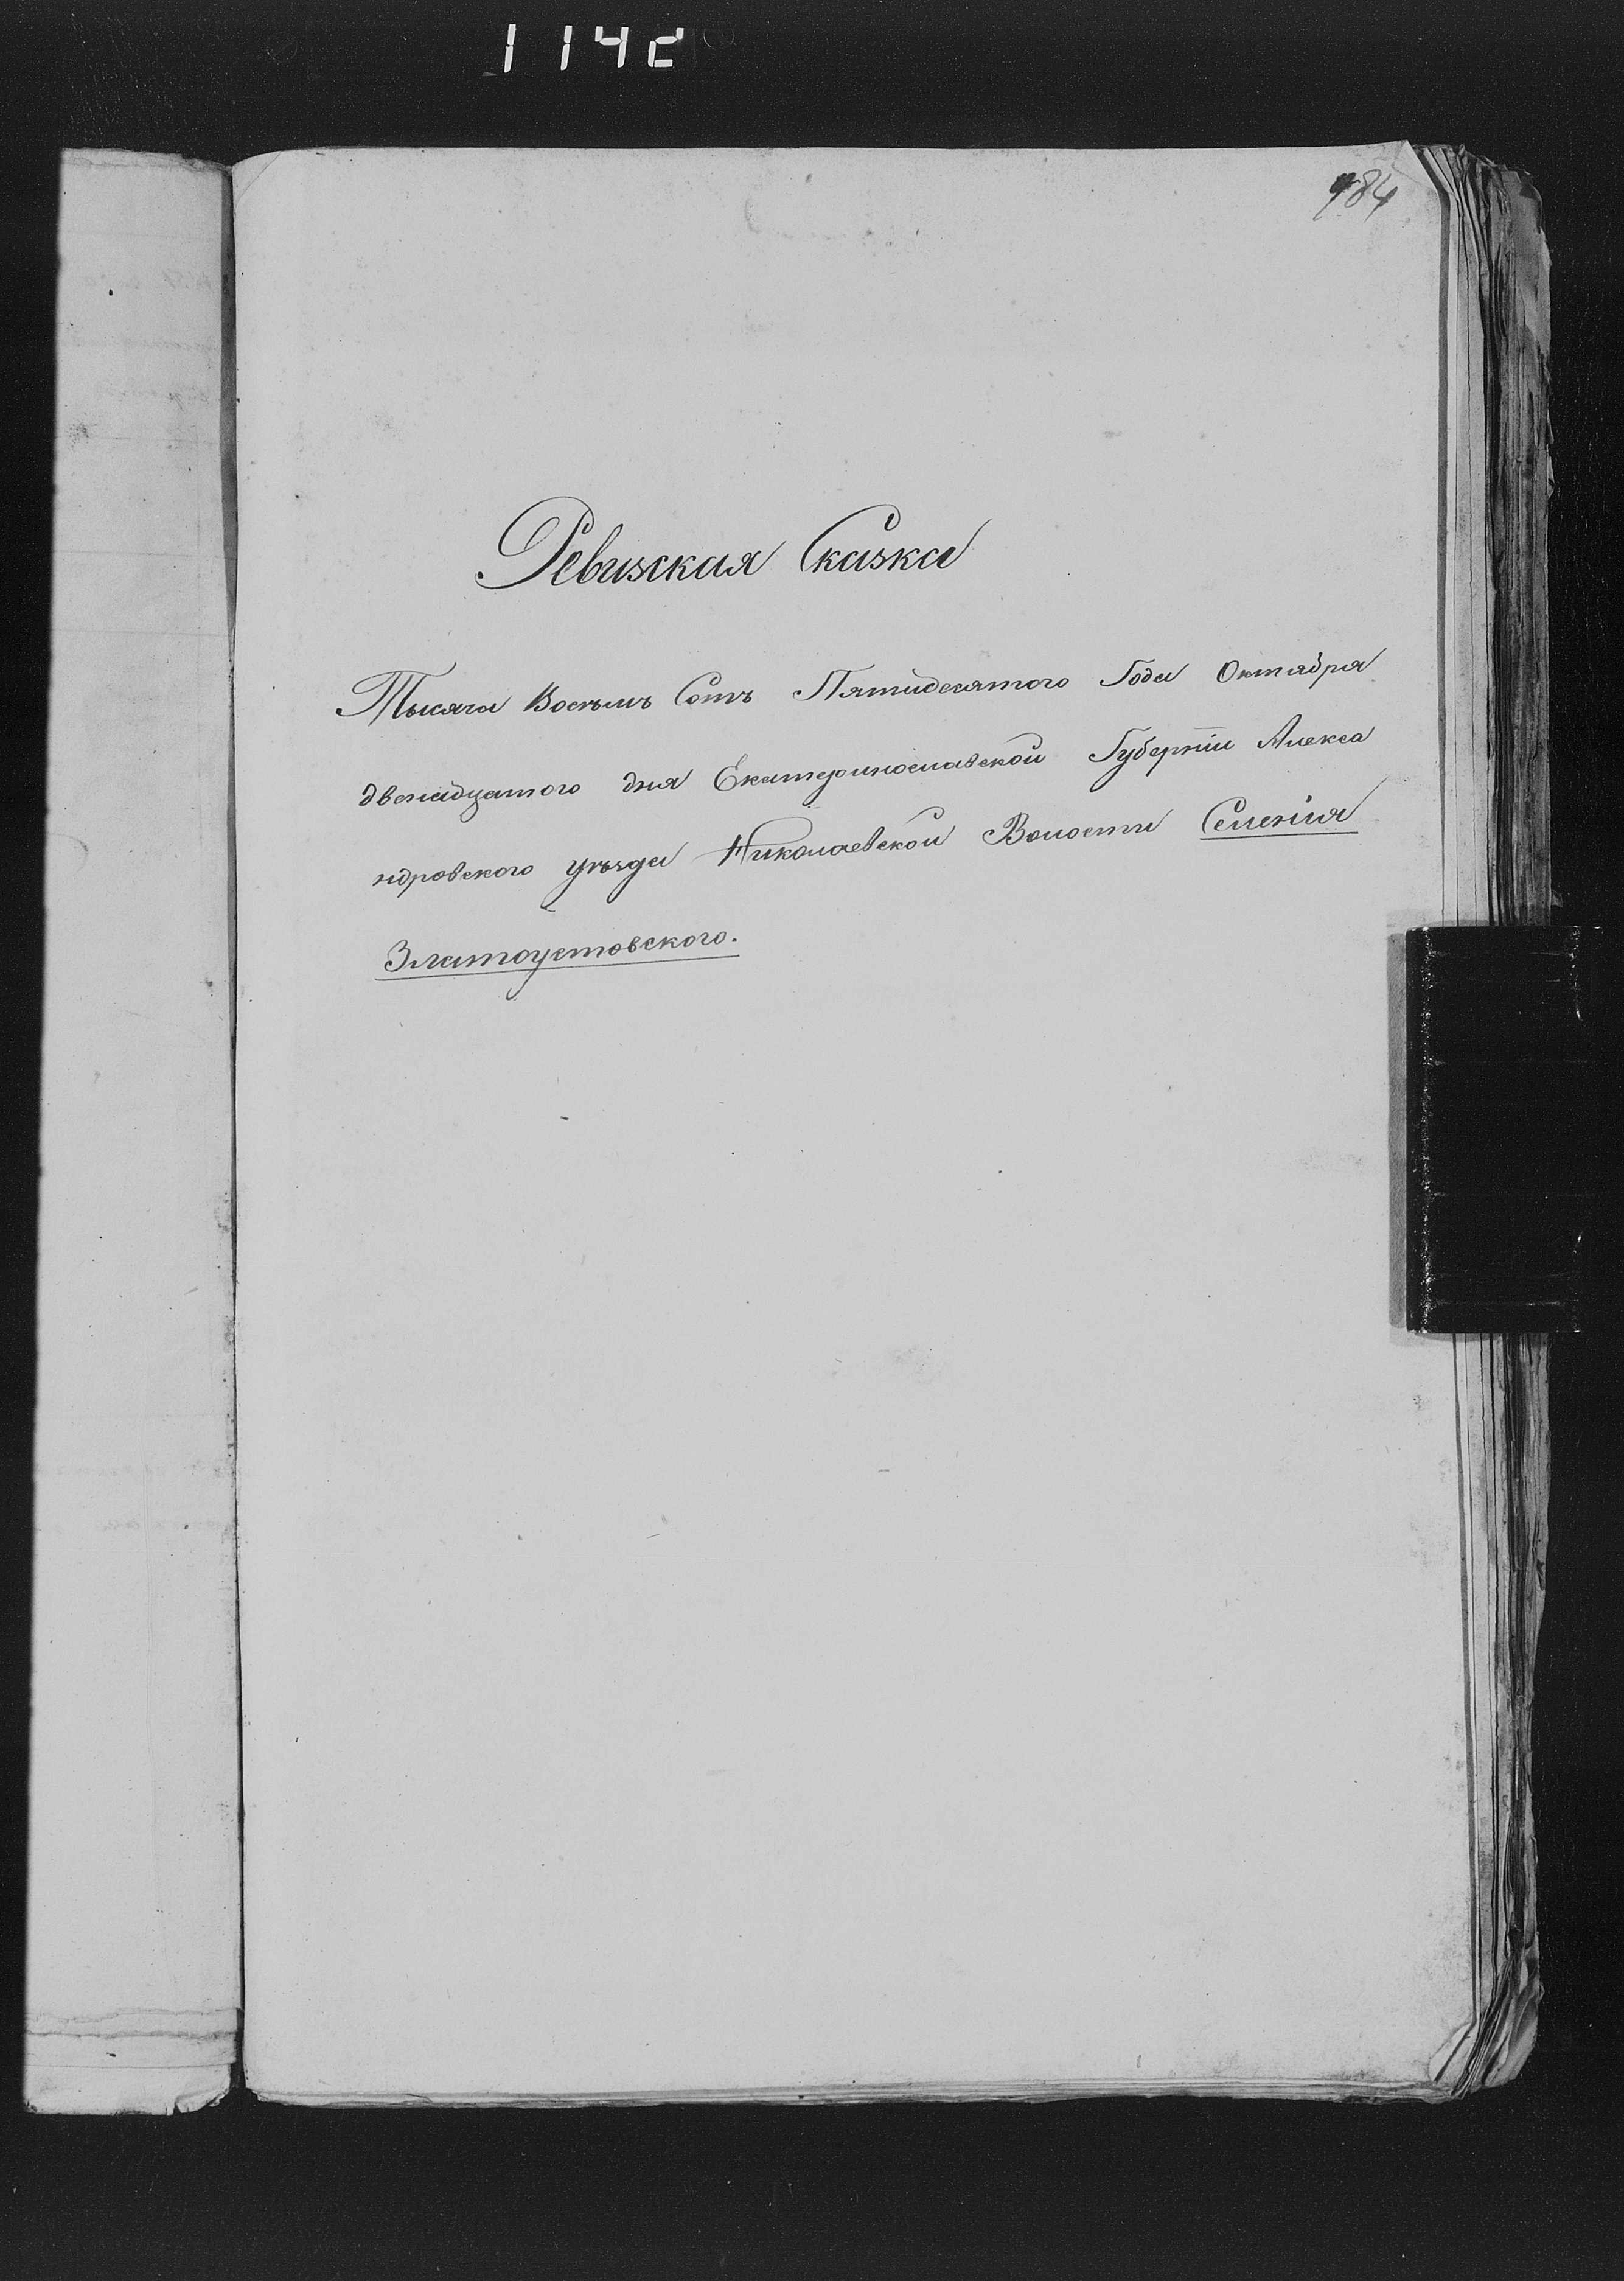 1142
484
Ревизская Сказка
Тысяча Восемь Сотъ Пятидесятого Года Октября
двенадцатого дня Екатеринославской Губернiи Алекса
ндровского уезда Николаевской Волости Селенiя
Златоустовского.